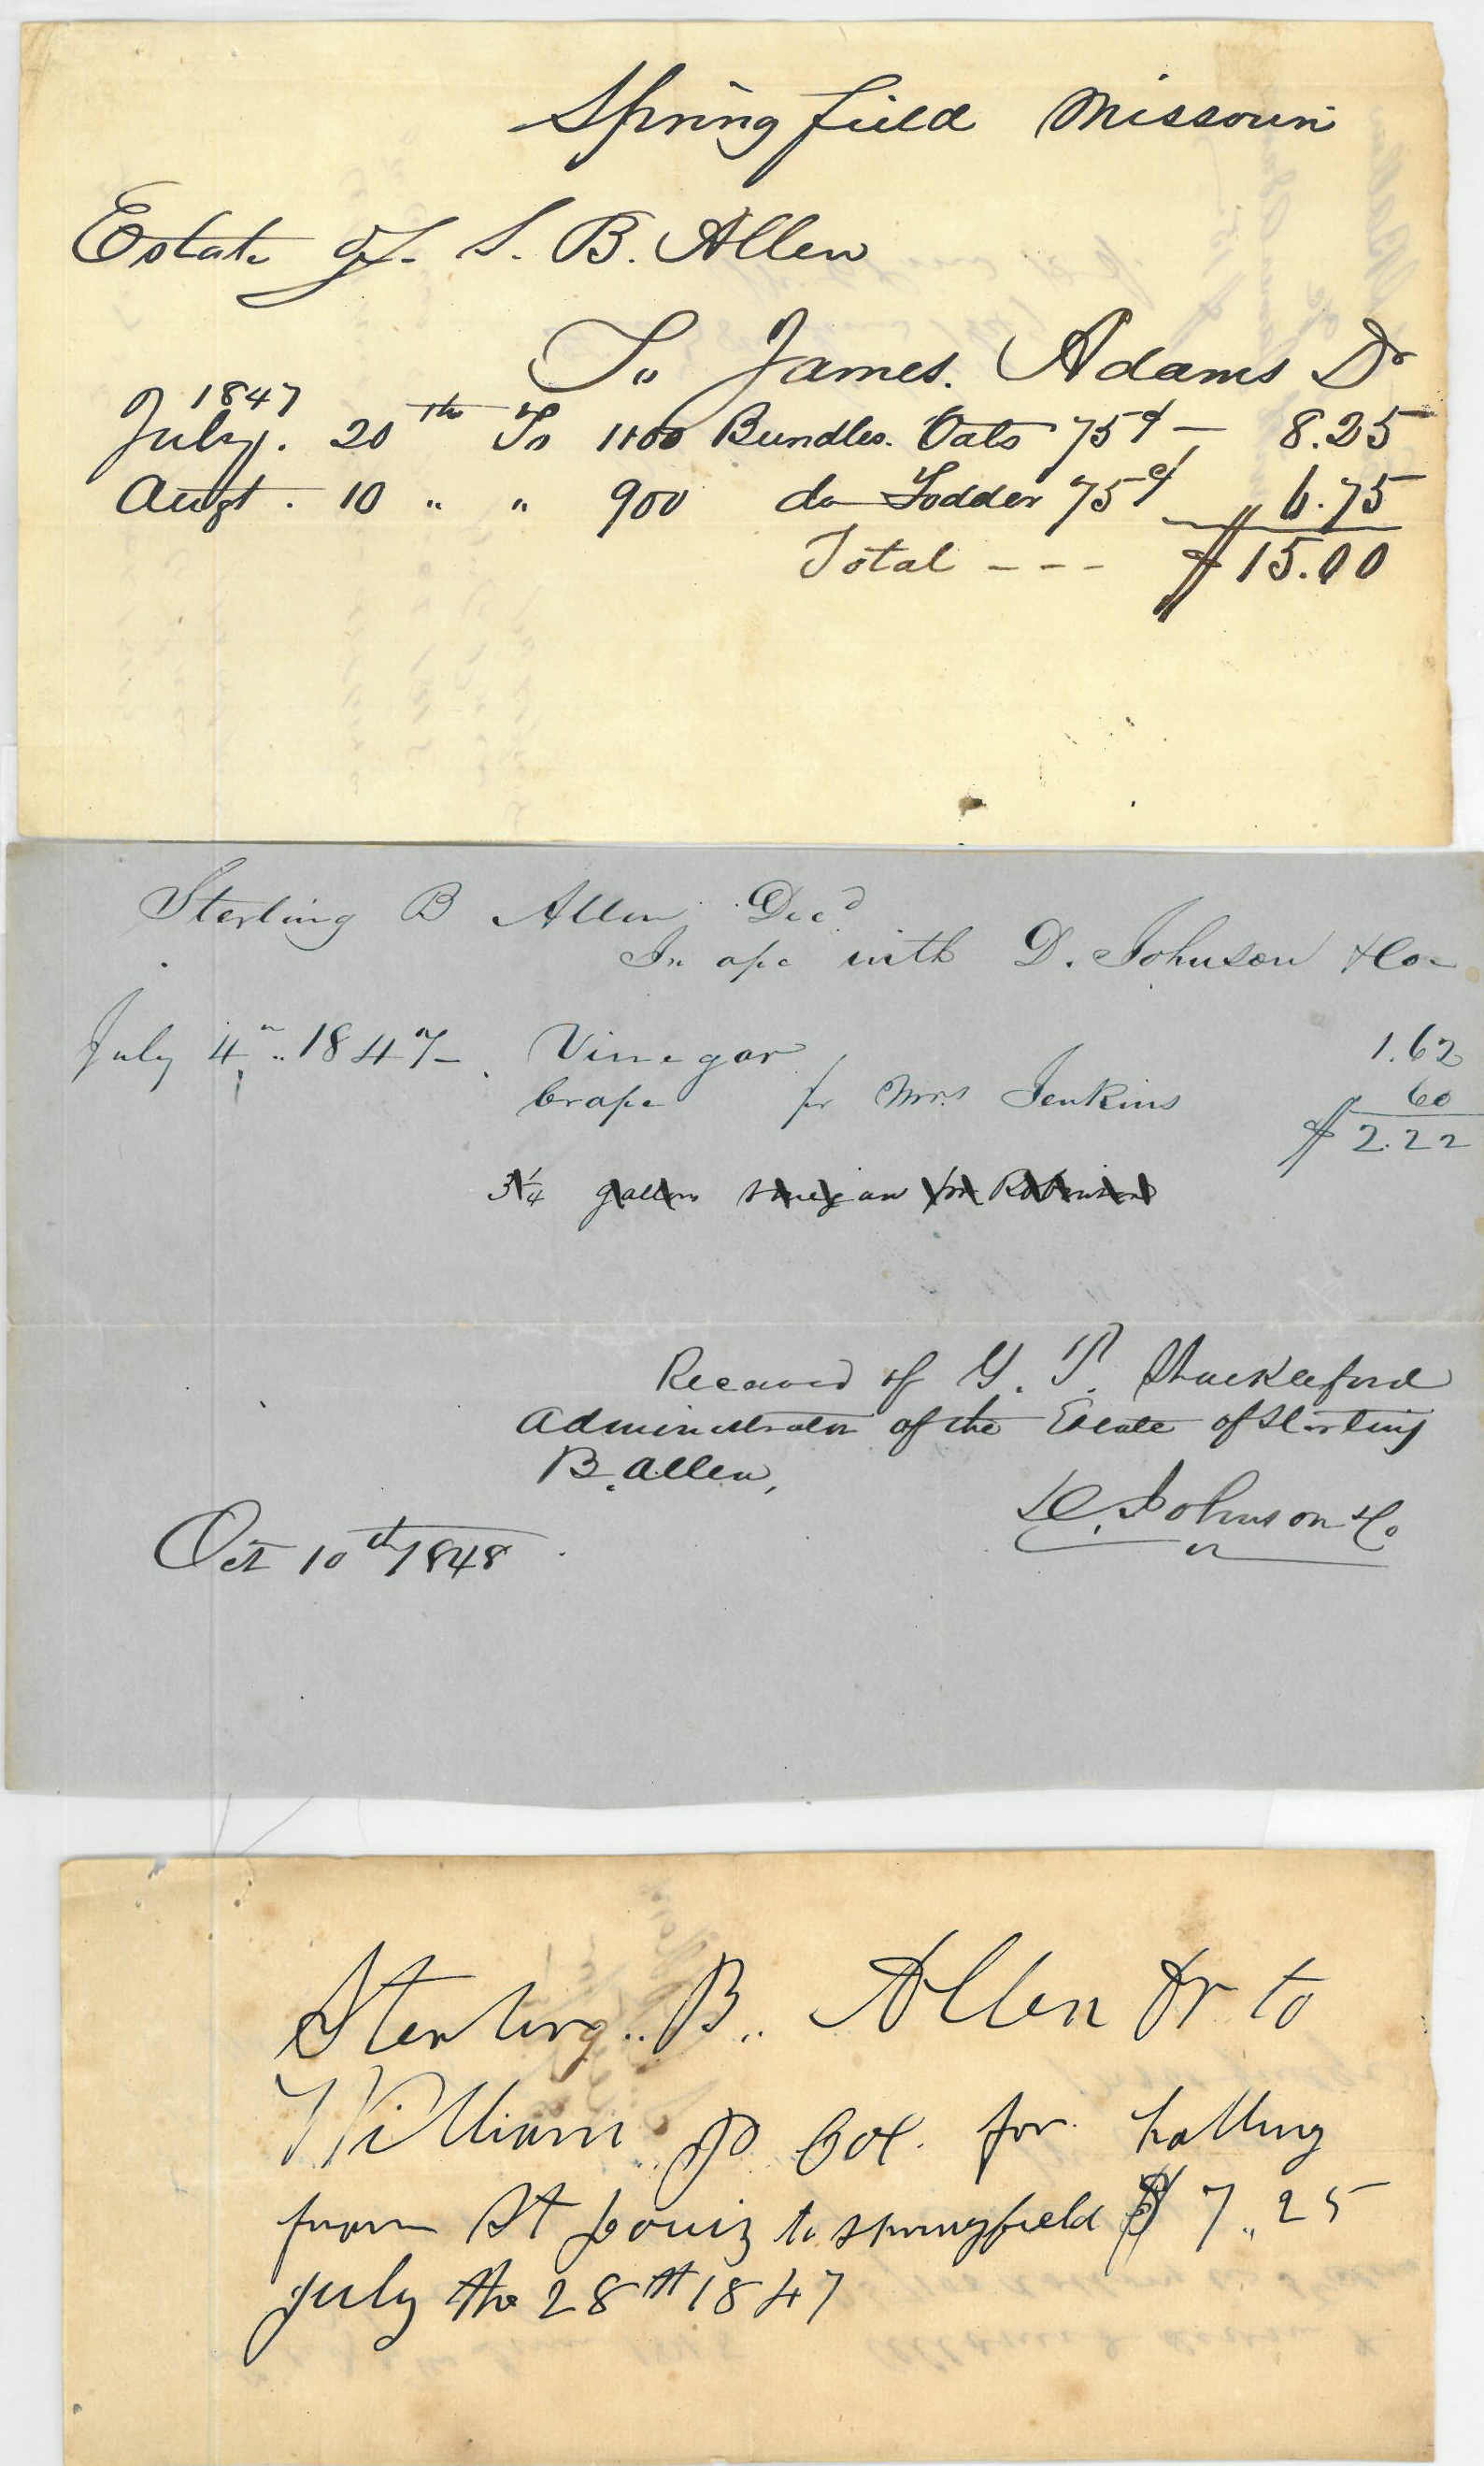 Springfield Missouri
Estate of S. B. Allen
To James. Adams Dr
1847
July. 20th To 1100 Bundles. Oats 75¢ — 8.25
Augt. 10 " " 900 do Fodder 75¢ 6.75
Total - - - $15.00
Sterling B Allen Decd
In a/c with D. Johnson & Co
July 4th 1847 Vinegar 1.62
Crape for Mrs Jenkins 60
$ 2.22
3 1/4 gallons
Received of G. P. Shackleford
Administrator of the Estate of Sterling
B. Allen,
D. Johnson & Co
Oct 10th 1848
Sterling.. B.. Allen Dr to
William P Cox. for halling
from St Louiz to springfield $ 7,,25
july the 28th 1847